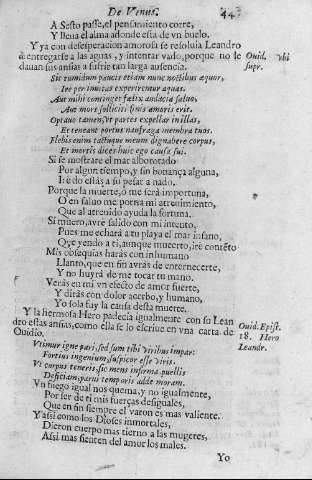 De Venus. 44
A Sesto passe, el pensamiento corre,
Y lleua el alma adonde està de vn buelo.
Y ya con desesperacion amorosa se resoluia Leandro
à entregarse a las aguas, y intentar vado, porque no le
dauan sus ansias a sufrir tan larga ausencia.
Ouid. vbi
supr.
Sit tumidum paucis etiam nunc noctibus æquor,
Ire per inuitas experirentur aquas.
Aut mihi continget fœlix audacia saluo,
Aut mors solliciti finis amoris erit.
Optabo tamen, vt partes expellar in illas,
Et teneant portus naufraga membra tuos.
Flebis enim tactuque meum dignabere corpus,
Et mortis dices huic ego causa fui.
Si se mostrare el mar alborotado
Por algun tiempo, y sin bonança alguna,
Irè do estàs a su pesar a nado.
Porque la muerte, ò me serà importuna,
O en saluo me porna mi atreuimiento,
Que al atreuido ayuda la fortuna.
Si muero, avrè salido con mi intento,
Pues me echarà a tu playa el mar insano,
Que yendo a ti, aunque muerto, irè contẽto
Mis obsequias haràs con inhumano
Llanto, que en fin avràs de enternecerte,
Y no huyrà de me tocar tu mano.
Veràs en mi vn efecto de amor fuerte,
Y diràs con dolor acerbo, y humano,
Yo sola fuy la causa desta muerte.
Y la hermosa Hero padecia igualmente con su Lean
dro estas ansias, como ella se lo escriue en vna carta de
Ouidio.
Ouid. Epist.
18. Hero
Leandr.
Vtimur igne pari, sed sum tibi viribus impar:
Fortius ingenium, suspicor esse viris.
Vt corpus teneris, sic mens infirma puellis
Deficiam, parui temporis adde moram.
Vn fuego igual nos quema, y no igualmente,
Por ser de ti mis fuerças desiguales,
Que en fin siempre el varon es mas valiente.
Y assi como los Dioses inmortales,
Dieron cuerpo mas tierno a las mugeres,
Assi mas sienten del amor los males.
Yo